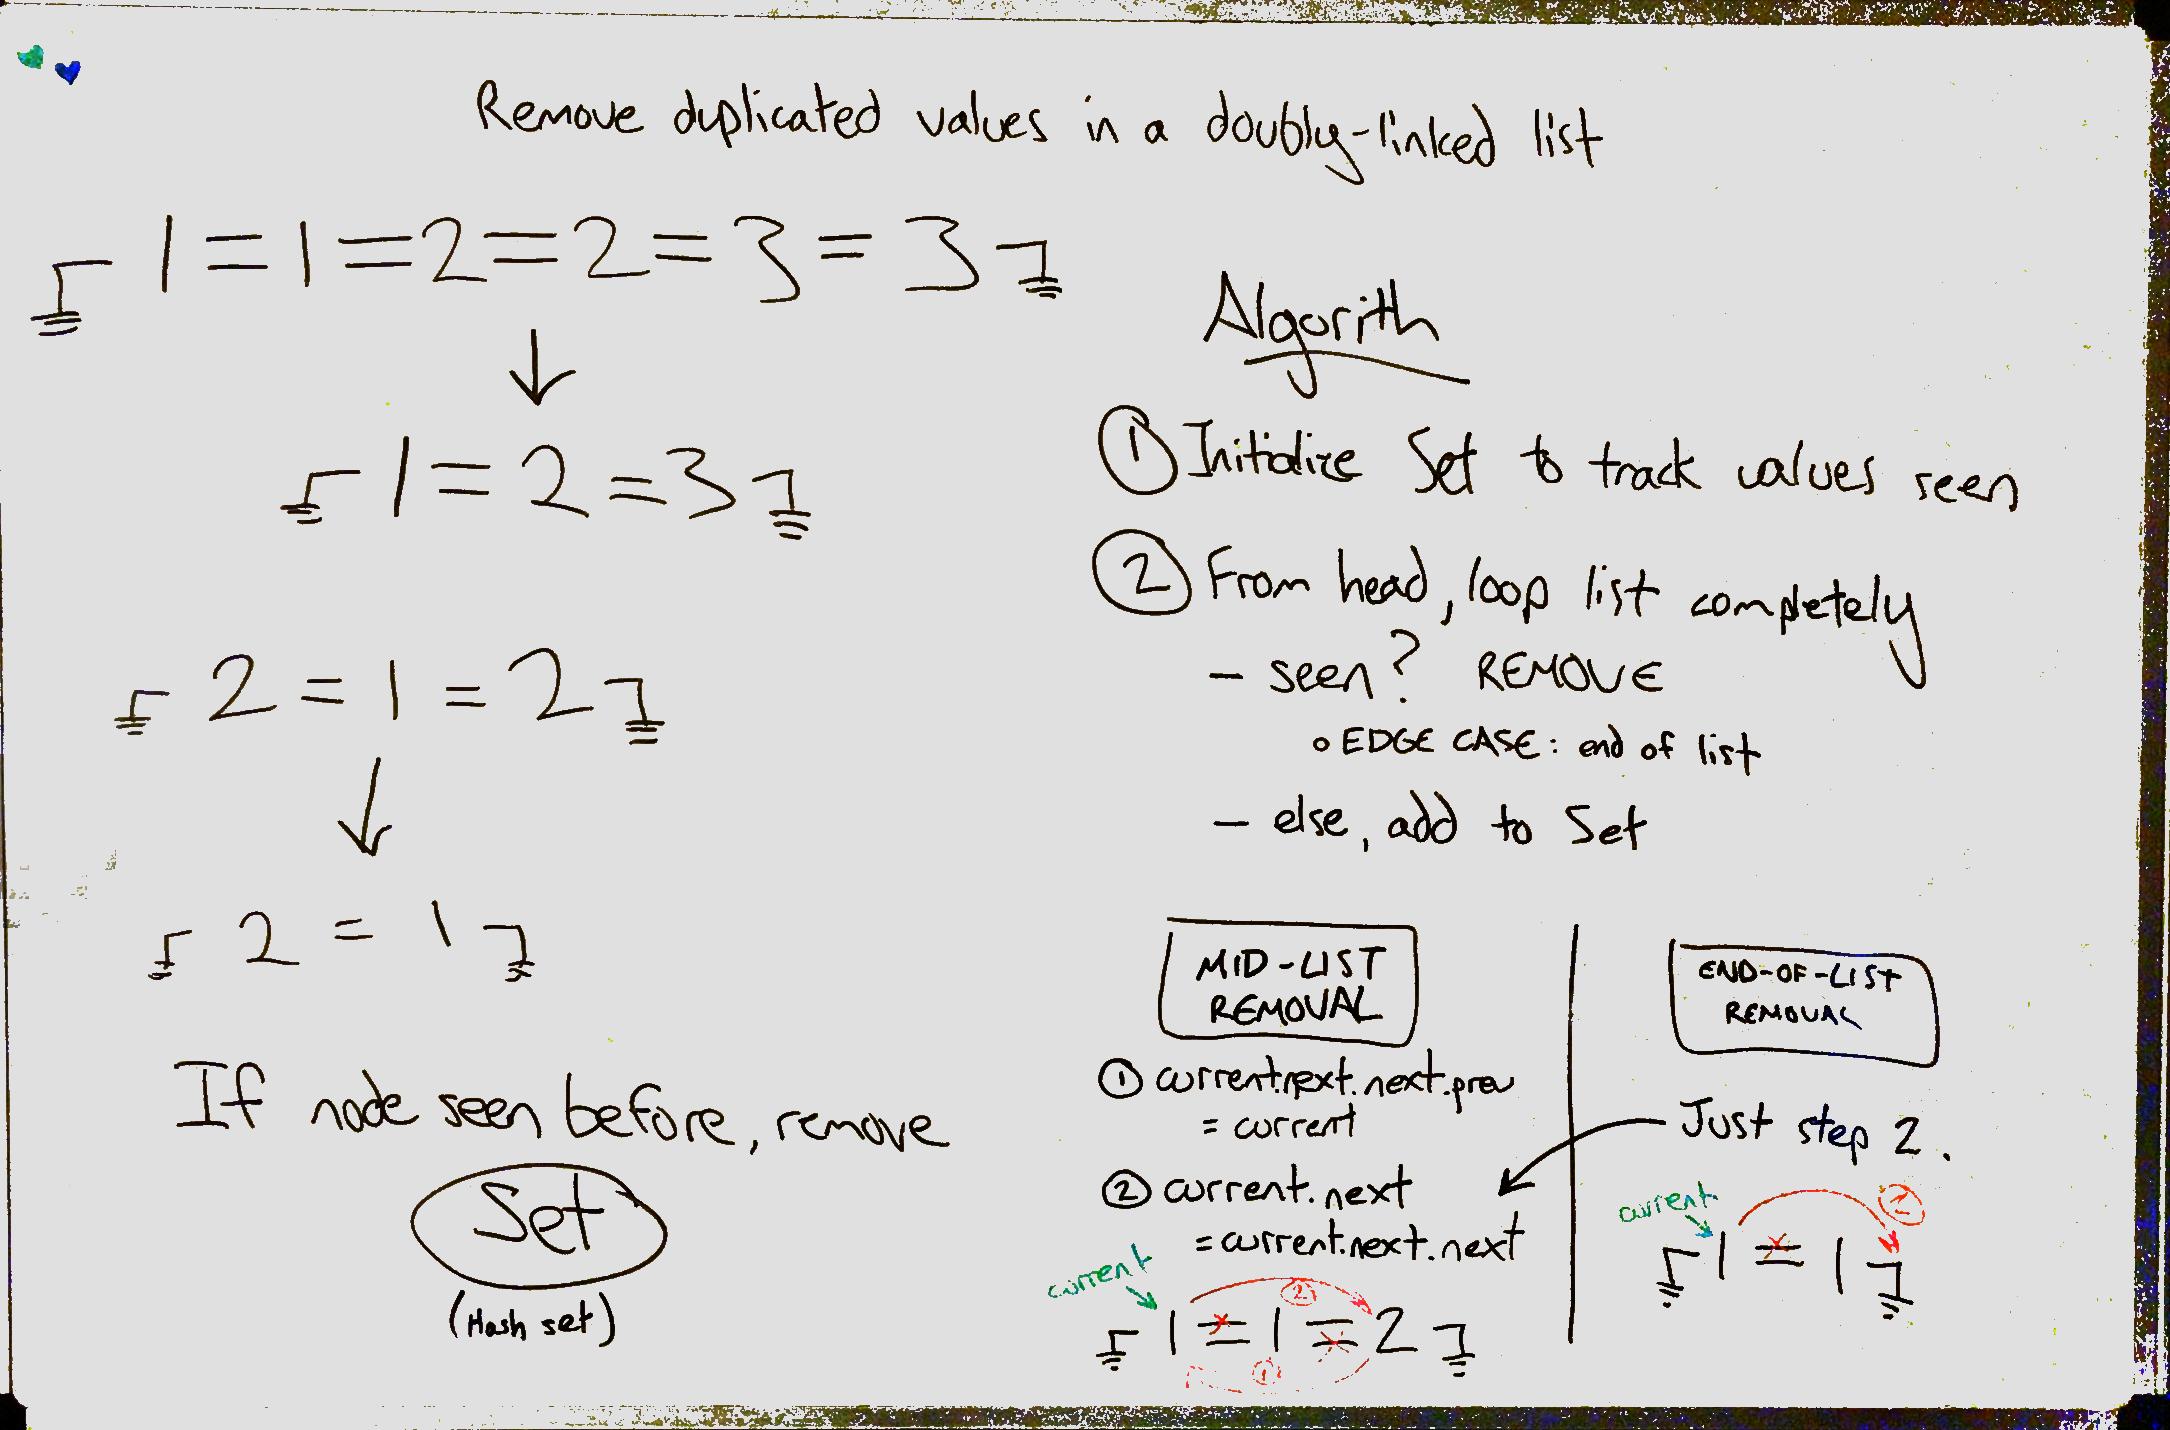 Remove duplicated values in a doubly-linked list
1=1=2=2=3=3
1=2=3
2=1=2
2=1
If node seen before, remove
Set
(Hash set)
Algorith
① Initialize Set to track values seen
② From head, loop list completely
- seen? REMOVE
o EDGE CASE: end of list
- else, add to Set
MID-LIST
REMOVAL
① current.next.next.prev
= current
② current.next
= current.next.next
current
②
1=1=2
①
END-OF-LIST
REMOVAL
Just step 2.
current
②
1=1